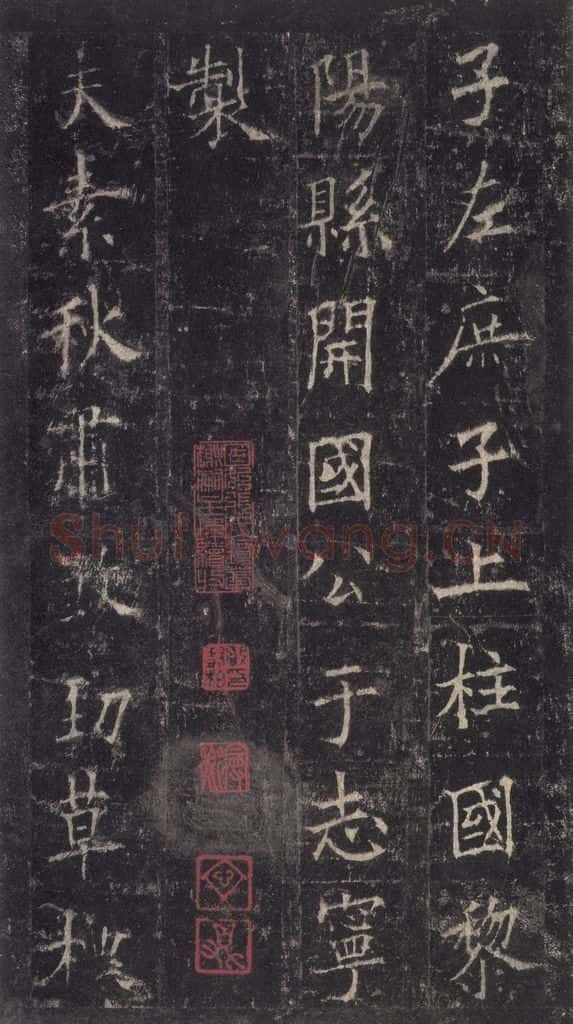 子左庶子上柱國黎
陽縣開國公于志寧
製
夫素秋肅煞勁草標
Shufawang.CN